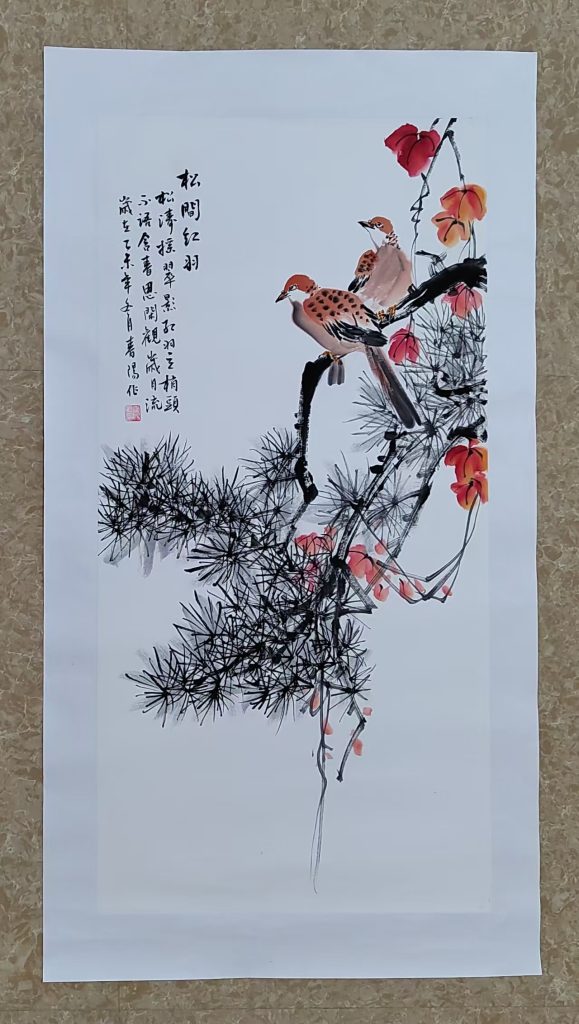 松間紅羽
松濤搖翠影紅羽立梢頭
不語含春思閑觀歲月流
歲在乙未年冬月春陽作